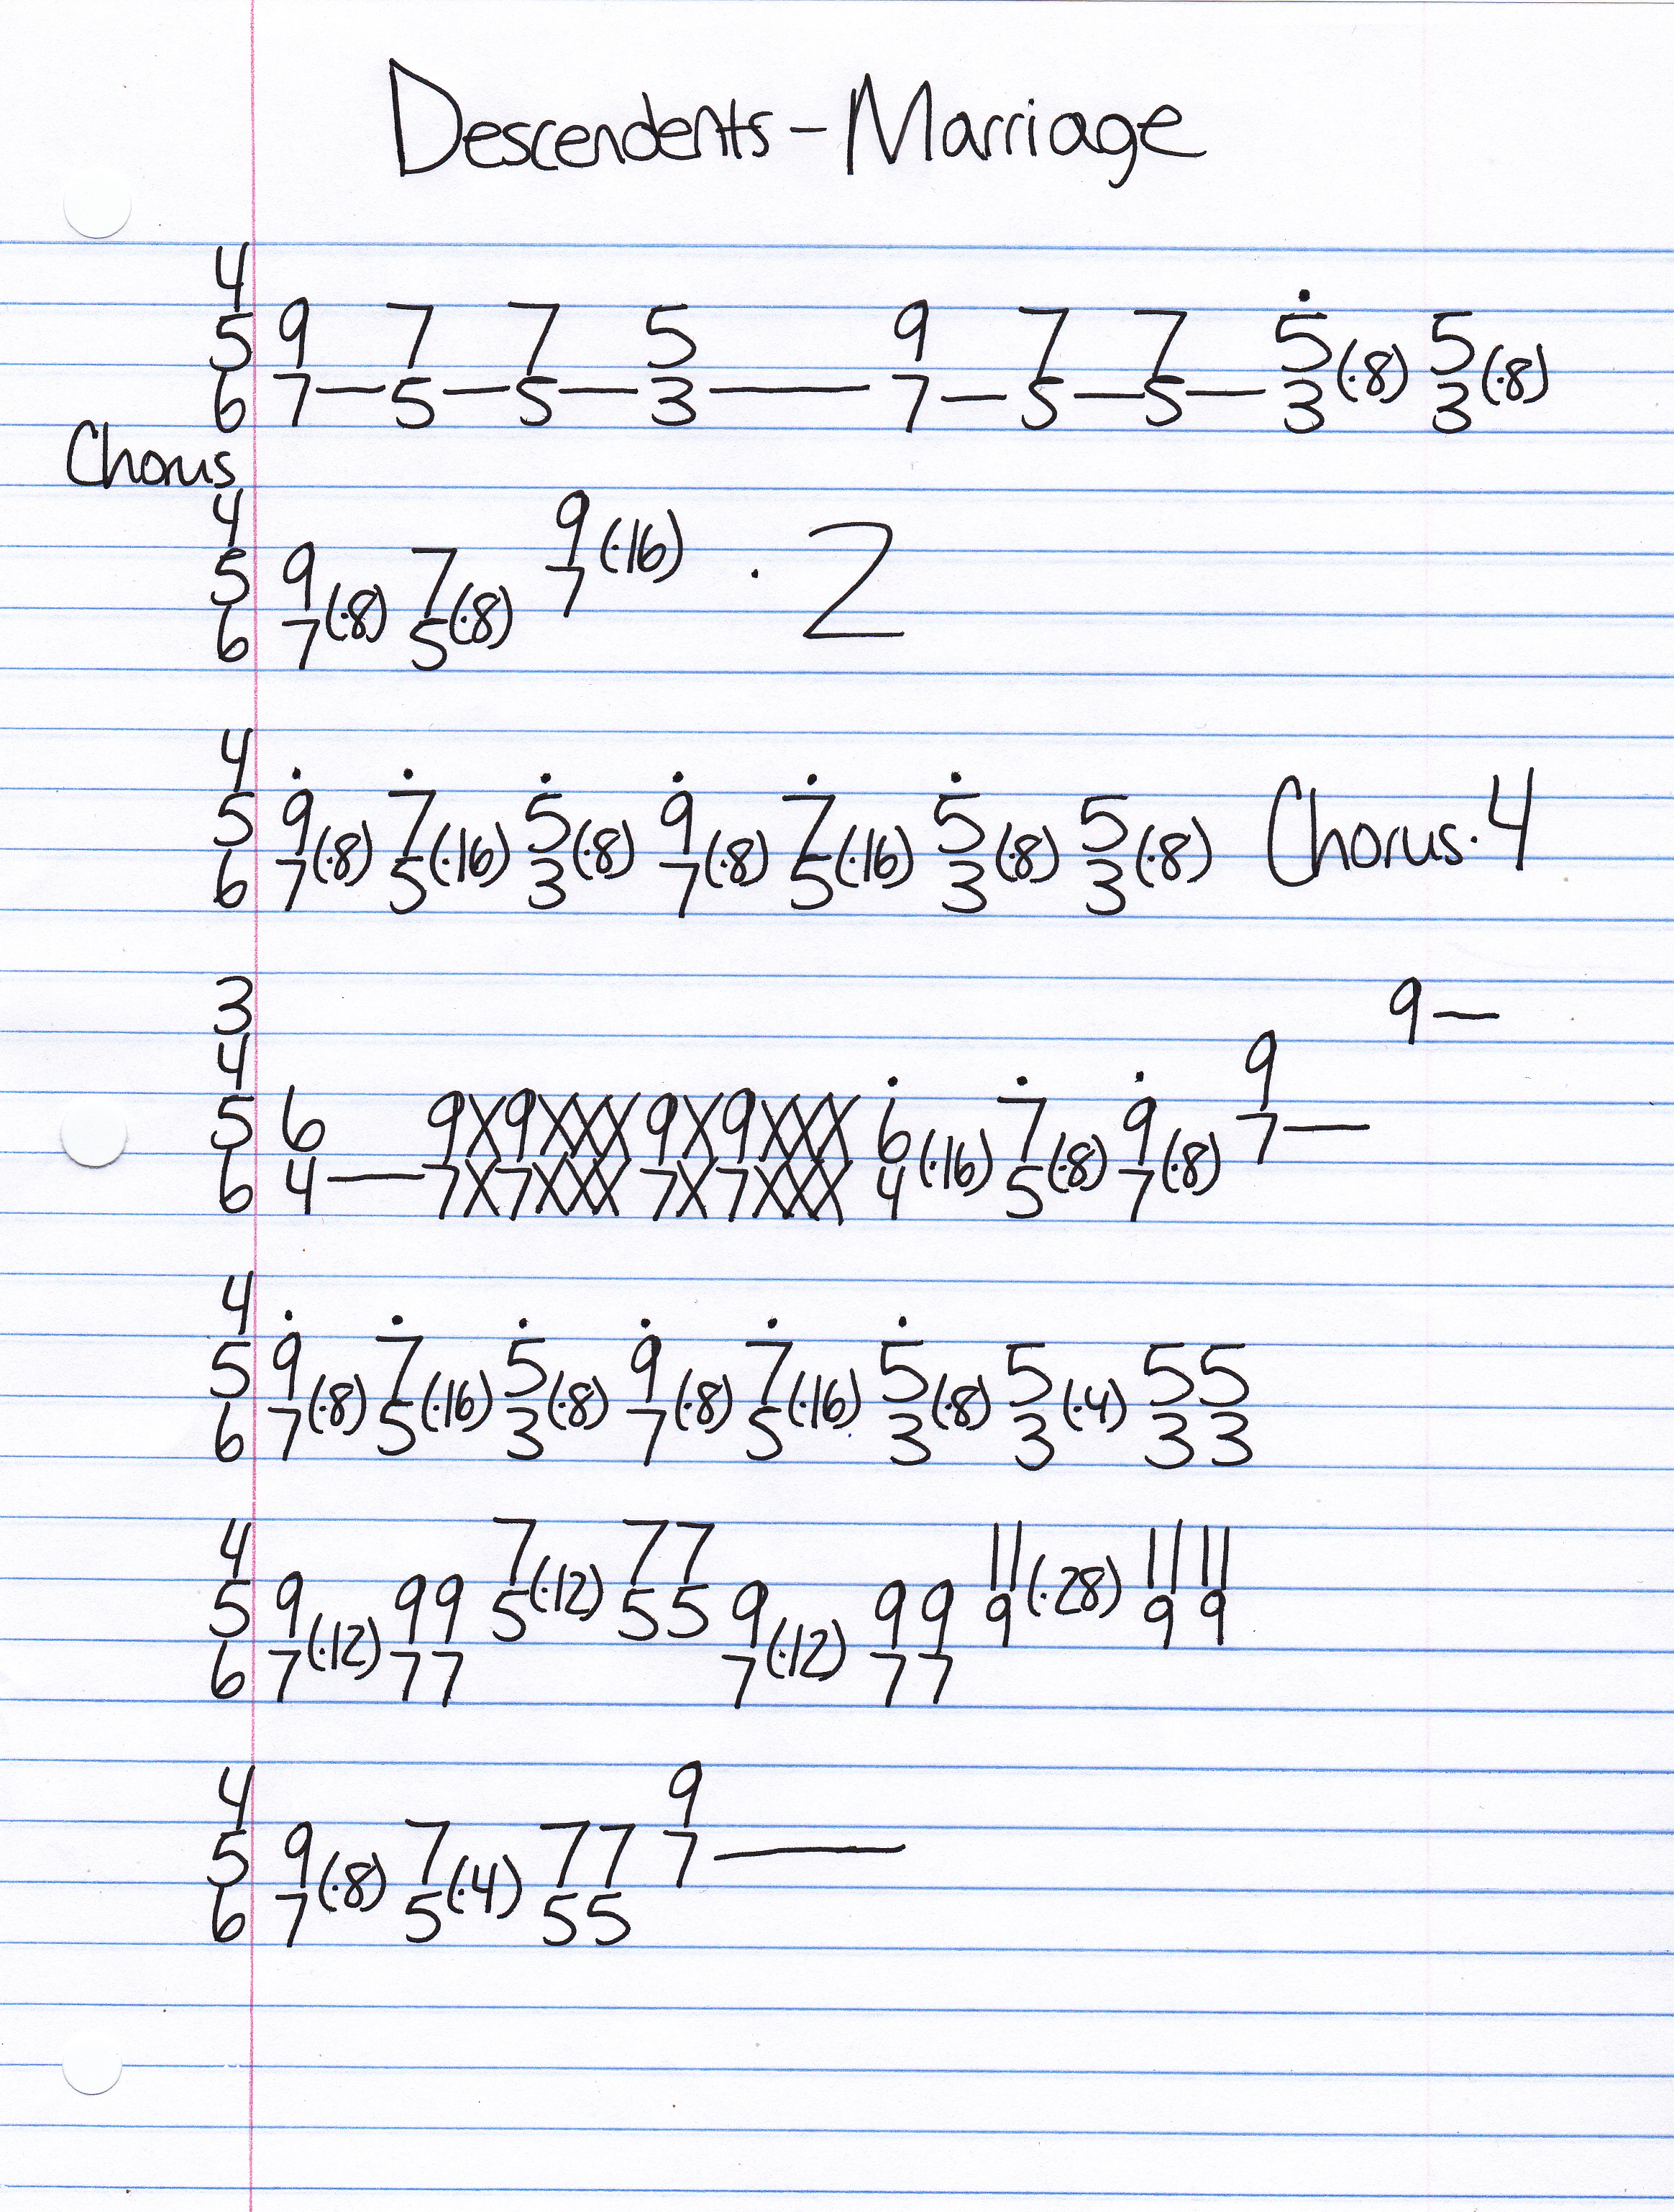 Descendents - Marriage
4
5 9 7 7 5 9 7 7 5 5
6 7 — 5 — 5 — 3 —— 7 — 5 — 5 — 3 (·8) 3 (·8)
Chorus
4 9 (·16) · 2
5 9 7 7
6 7 (·8) 5 (·8)
4
5 9 7 5 9 7 5 5 Chorus · 4
6 7 (·8) 5 (·16) 3 (·8) 7 (·8) 5 (·16) 3 (·8) 3 (·8)
3 9 —
4 9
5 6 9X9XXX 9X9XXX 6 7 9 7 —
6 4 — 7X7XXX 7X7XXX 4 (·16) 5 (·8) 7 (·8)
4
5 9 7 5 9 7 5 5 5 5
6 7 (·8) 5 (·16) 3 (·8) 7 (·8) 5 (·16) 3 (·8) 3 (·4) 3 3
4 7 (·12) 7 7 11 (·28) 11 11
5 9 9 9 5 5 5 9 9 9 9 9 9
6 7 (·12) 7 7 7 (·12) 7 7
4 9
5 9 7 7 7 7 ——
6 7 (·8) 5 (·4) 5 5